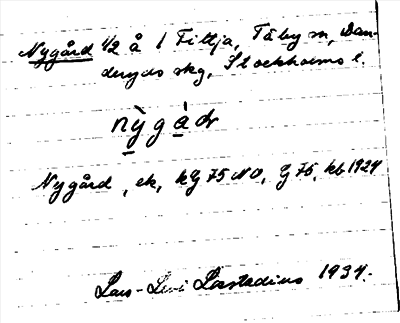 Nygård 1/2 å 1 Fittja, Täby sn, Dan-
deryds skg, Stockholms l.
nỳgàdr
Nygård, ek, kg 75 NO, G 75, kb 1924
Lars-Levi Læstadius 1934.